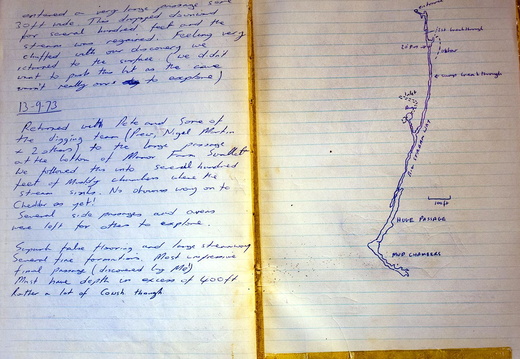 entered a very large passage some
30ft wide. This dropped downward
for several hundred feet and the
stream was regained. Feeling very
chuffed with our discovery we
returned to the surface (we didn't
want to push this bit as the cave
wasn't really ours to explore)
13-9-73
Returned with Pete and some of
the digging team (Prew, Nigel, Martin
+ 2 others) to the large passage
at the bottom of Manor Farm Swallet
We followed this into several hundred
feet of Muddy chambers where the
stream sinks. No obvious way on to
Cheddar as yet!
Several side passages and avens
were left for others to explore.
Superb false flooring and large streamway
Several fine formations. Most impressive
final passage (discovered by Me)
Must have depth in excess of 400ft
Rather a lot of Conish though
Entrance
1st breakthrough
100ft
HUGE PASSAGE
MUD CHAMBERS